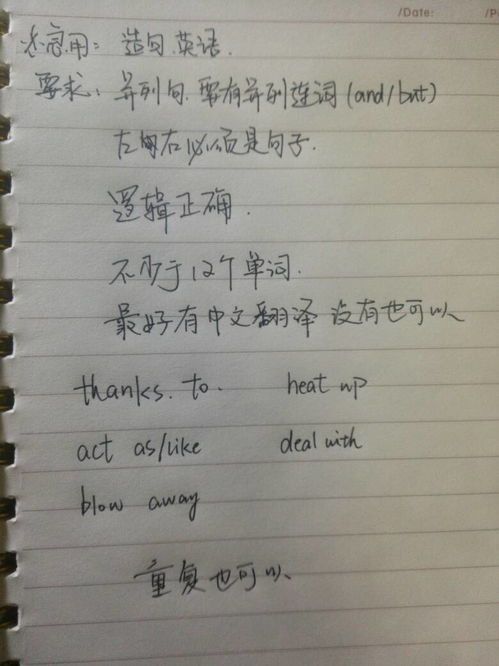 /Date: /P
用：造句.英语.
要求：并列句.要有并列连词(and/but)
左右必须是句子.
逻辑正确.
不少于12个单词.
最好有中文翻译 没有也可以
thanks. to. heat up
act as/like deal with
blow away
重复也可以